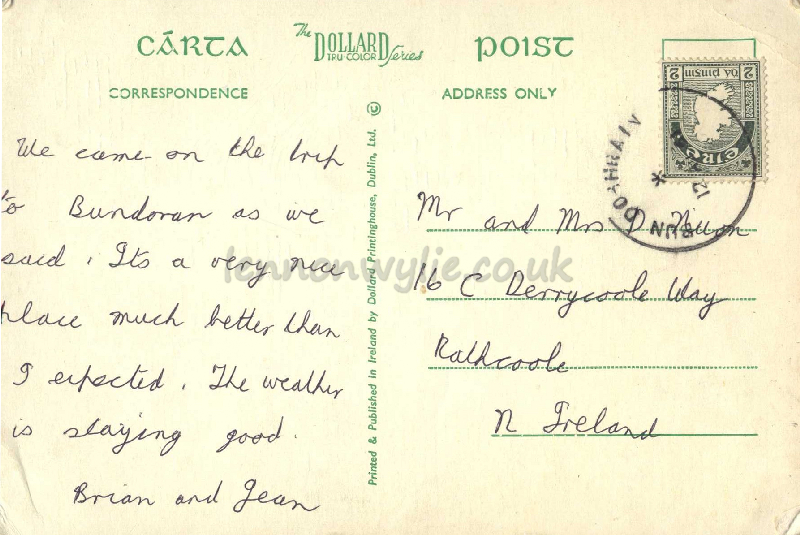 CÁRTA
The DOLLARD Series
TRU-COLOR
POIST
CORRESPONDENCE
ADDRESS ONLY
We came on the trip
to Bundoran as we
said. Its a very nice
place much better than
I expected. The weather
is staying good.
Brian and Jean
Printed & Published in Ireland by Dollard Printinghouse, Dublin, Ltd. ©
Mr and Mrs D Nixon
16 C Derrycoole Way
Rathcoole
N Ireland
2 dá pingin 2
éire
BUN DOBHRAIN
lennonwylie.co.uk